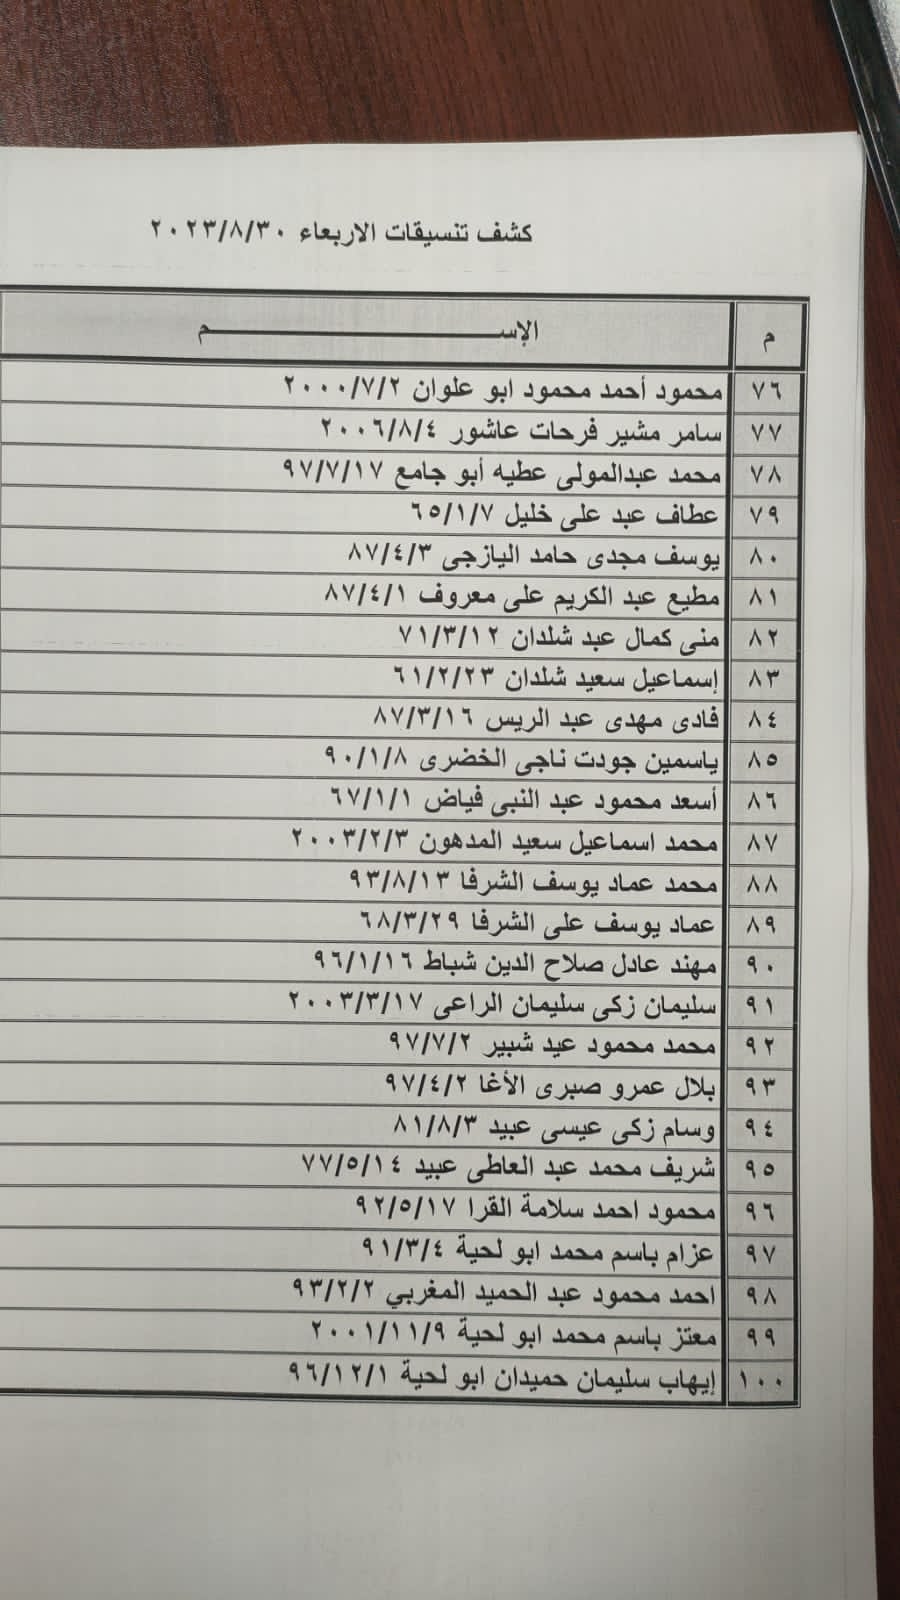 كشف تنسيقات الاربعاء ٢٠٢٣/٨/٣٠
م الإسم
٧٦ محمود أحمد محمود ابو علوان ٢٠٠٠/٧/٢
٧٧ سامر مشير فرحات عاشور ٢٠٠٦/٨/٤
٧٨ محمد عبدالمولى عطيه أبو جامع ٩٧/٧/١٧
٧٩ عطاف عبد على خليل ٦٥/١/٧
٨٠ يوسف مجدى حامد اليازجى ٨٧/٤/٣
٨١ مطيع عبد الكريم على معروف ٨٧/٤/١
٨٢ منى كمال عبد شلدان ٧١/٣/١٢
٨٣ إسماعيل سعيد شلدان ٦١/٢/٢٣
٨٤ فادى مهدى عبد الريس ٨٧/٣/١٦
٨٥ ياسمين جودت ناجى الخضرى ٩٠/١/٨
٨٦ أسعد محمود عبد النبى فياض ٦٧/١/١
٨٧ محمد اسماعيل سعيد المدهون ٢٠٠٣/٢/٣
٨٨ محمد عماد يوسف الشرفا ٩٣/٨/١٣
٨٩ عماد يوسف على الشرفا ٦٨/٣/٢٩
٩٠ مهند عادل صلاح الدين شباط ٩٦/١/١٦
٩١ سليمان زكى سليمان الراعى ٢٠٠٣/٣/١٧
٩٢ محمد محمود عيد شبير ٩٧/٧/٢
٩٣ بلال عمرو صبرى الأغا ٩٧/٤/٢
٩٤ وسام زكى عيسى عبيد ٨١/٨/٣
٩٥ شريف محمد عبد العاطى عبيد ٧٧/٥/١٤
٩٦ محمود احمد سلامة القرا ٩٢/٥/١٧
٩٧ عزام باسم محمد ابو لحية ٩١/٣/٤
٩٨ احمد محمود عبد الحميد المغربي ٩٣/٢/٢
٩٩ معتز باسم محمد ابو لحية ٢٠٠١/١١/٩
١٠٠ إيهاب سليمان حميدان ابو لحية ٩٦/١٢/١